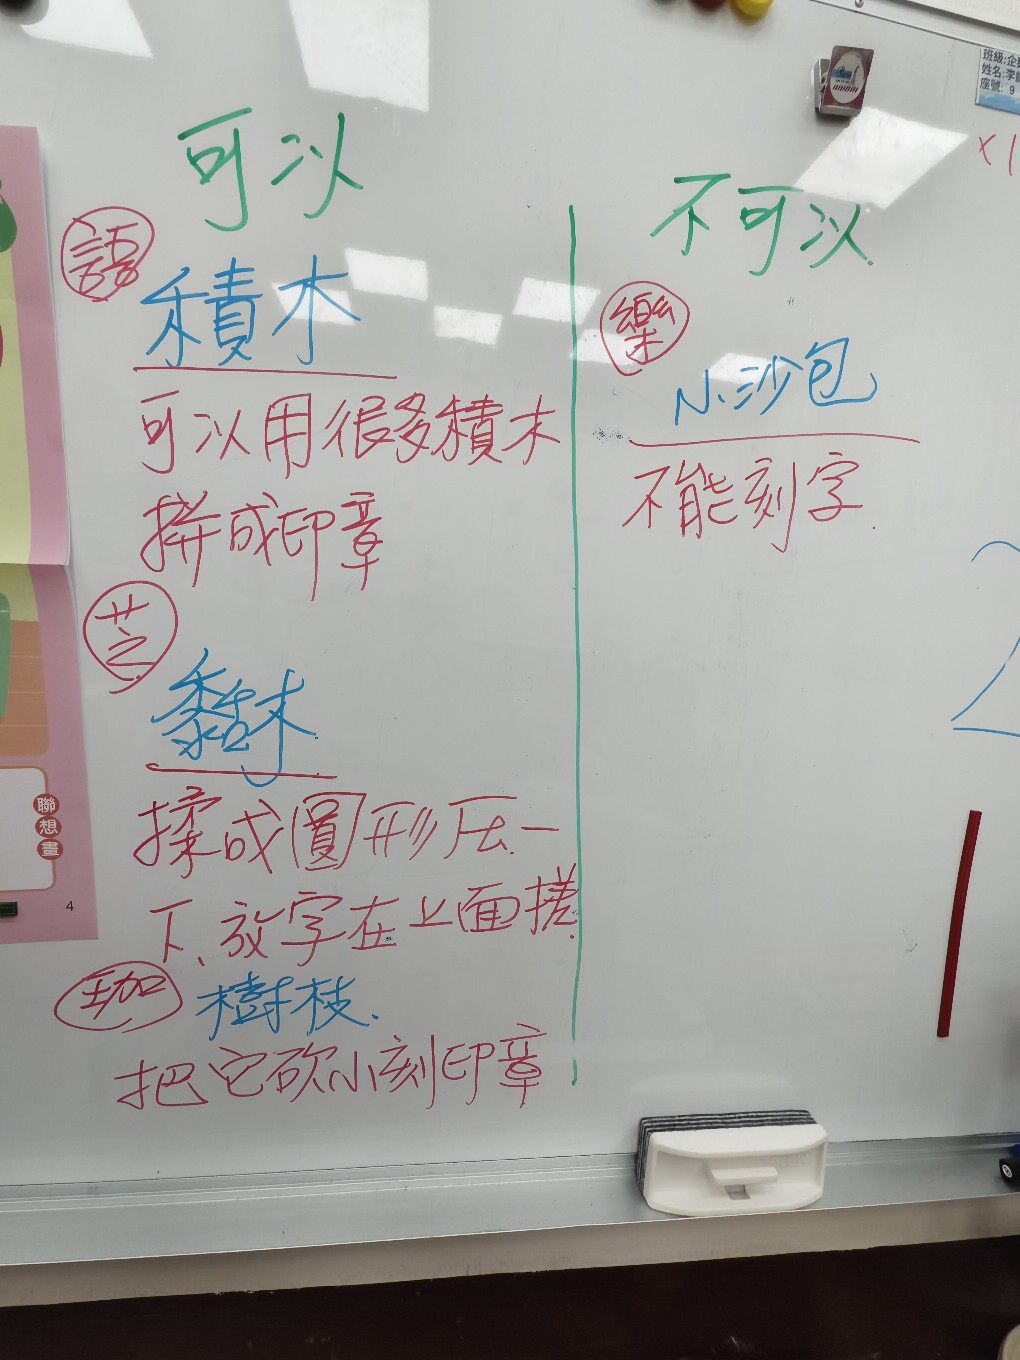 可以
語
積木
可以用很多積木
拼成印章
芝
黏木
揉成圓形压一
下、放字在上面搓
珈
樹枝.
把它砍小刻印章
不可以.
樂
小沙包
不能刻字.
班級:企
姓名:李
座號: 9
x1
2
聯想畫
4